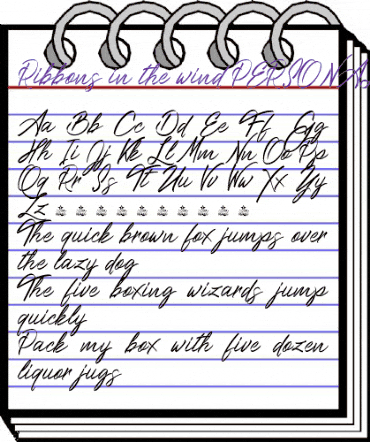 Ribbons in the wind PERSONA
Aa Bb Cc Dd Ee Ff Gg
Hh Ii Jj Kk Ll Mm Nn Oo Pp
Qq Rr Ss Tt Uu Vv Ww Xx Yy
Zz
The quick brown fox jumps over
the lazy dog
The five boxing wizards jump
quickly
Pack my box with five dozen
liquor jugs